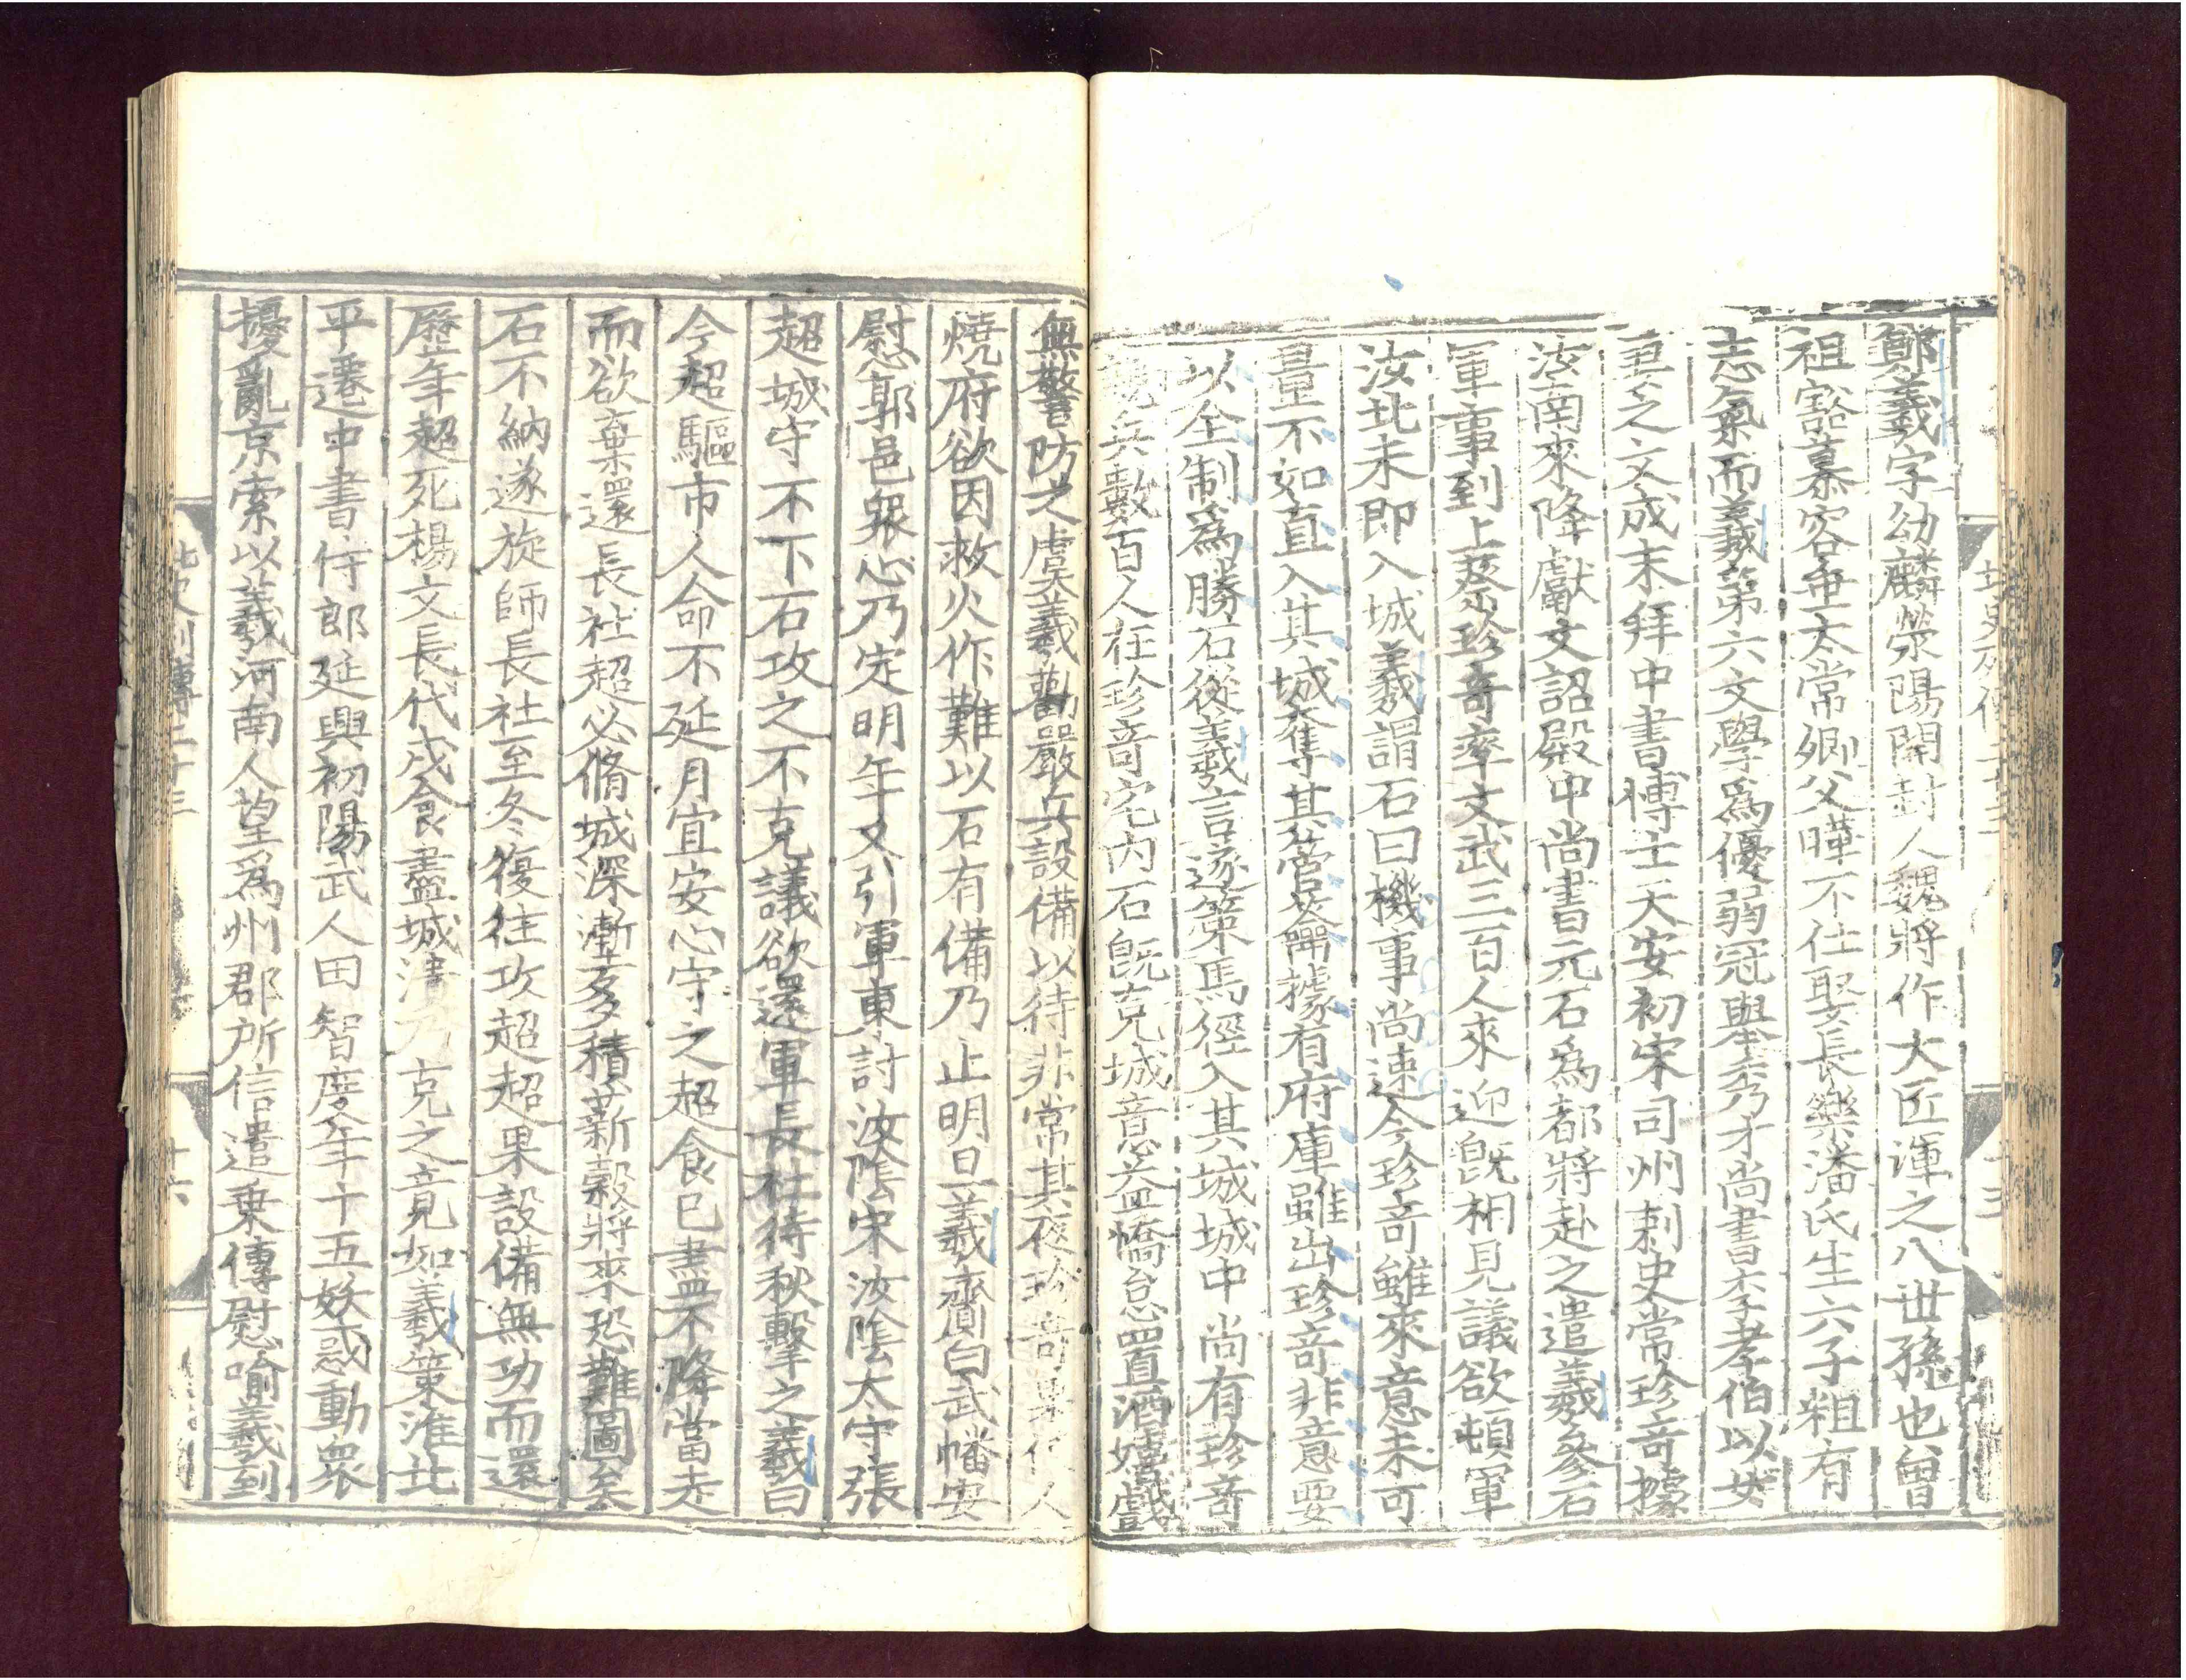 鄭羲字幼麟滎陽開封人魏將作大匠渾之八世孫也曾
祖豁慕容垂太常卿父曄不仕娶長樂潘氏生六子粗有
志氣而羲第六文學爲優弱冠舉秀才尚書李孝伯以女
妻之文成末拜中書博士天安初宋司州刺史常珍奇據
汝南來降獻文詔殿中尚書元石爲都將赴之遣羲參石
軍事到上蔡珍奇率文武三百人來迎旣相見議欲頓軍
汝北未即入城羲謂石曰機事尚速今珍奇雖來意未可
量不如直入其城奪其管籥據有府庫雖出珍奇非意要
以全制爲勝石從羲言遂策馬徑入其城城中尚有珍奇
親兵數百人在珍奇宅内石旣克城意益憍怠置酒嬉戲
無警防之虞羲勸嚴兵設備以待非常其夜珍奇果使人
燒府欲因救火作難以石有備乃止明旦羲齎白武幡安
慰郭邑衆心乃定明年又引軍東討汝隂宋汝隂太守張
超城守不下石攻之不克議欲還軍長社待秋擊之羲曰
今超驅市人命不延月宜安心守之超食已盡不降當走
而欲棄還長社超必脩城深壍多積薪穀將來恐難圖矣
石不納遂旋師長社至冬復往攻超超果設備無功而還
歷年超死楊文長代戍食盡城潰乃克之竟如羲策淮北
平遷中書侍郎延興初陽武人田智度年十五妖惑動衆
擾亂京索以羲河南人望爲州郡所信遣乗傳慰喻羲到
北史列傳二十三
十六